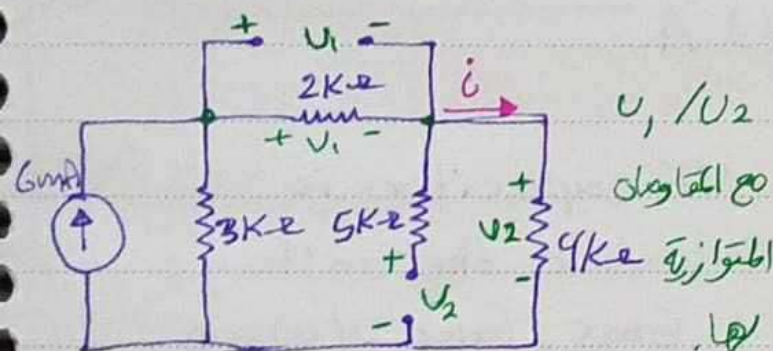 + U₁ -
2KΩ
i
+ V₁ -
6mA
3KΩ
5KΩ
+
U₂
-
+
U2
-
4KΩ
U₁ / U2
مع المقاومات
المتوازية
لها